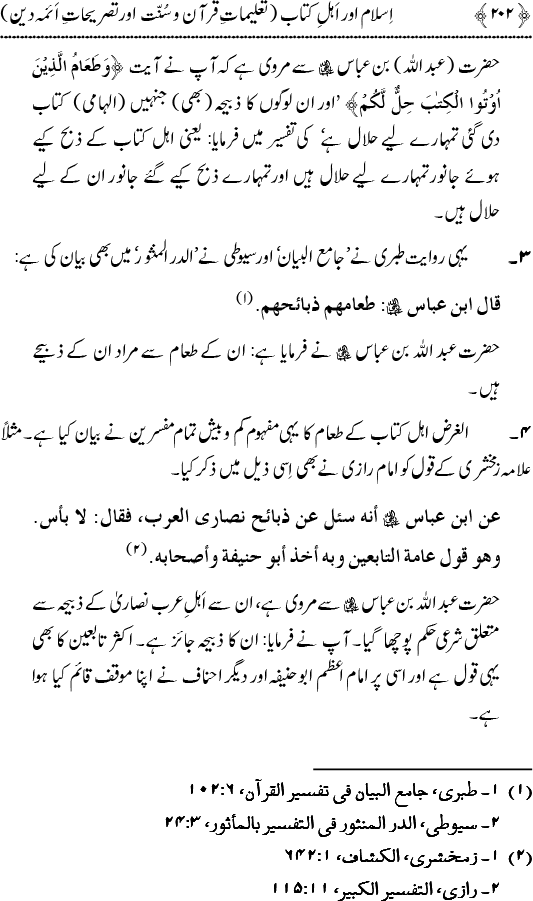 ﴿۲۰۲﴾ اِسلام اور اَہلِ کتاب (تعلیماتِ قرآن و سُنّت اور تصریحاتِ اَئمہ دین)
حضرت (عبد اللہ) بن عباس رضی اللہ عنہما سے مروی ہے کہ آپ نے آیت ﴿وَطَعَامُ الَّذِيْنَ
اُوْتُوا الْكِتٰبَ حِلٌّ لَّكُمْ﴾ ’اور ان لوگوں کا ذبیحہ (بھی) جنہیں (الہامی) کتاب
دی گئی تمہارے لیے حلال ہے‘ کی تفسیر میں فرمایا: یعنی اہل کتاب کے ذبح کیے
ہوئے جانور تمہارے لیے حلال ہیں اور تمہارے ذبح کیے گئے جانور ان کے لیے
حلال ہیں۔
۳۔ یہی روایت طبری نے ’جامع البیان‘ اور سیوطی نے ’الدر المنثور‘ میں بھی بیان کی ہے:
قال ابن عباس رضی اللہ عنہما: طعامهم ذبائحهم. (۱)
حضرت عبد اللہ بن عباس رضی اللہ عنہما نے فرمایا ہے: ان کے طعام سے مراد ان کے ذبیحے
ہیں۔
۴۔ الغرض اہل کتاب کے طعام کا یہی مفہوم کم و بیش تمام مفسرین نے بیان کیا ہے۔ مثلاً
علامہ زمخشری کے قول کو امام رازی نے بھی اِسی ذیل میں ذکر کیا۔
عن ابن عباس رضی اللہ عنہما أنه سئل عن ذبائح نصارى العرب، فقال: لا بأس.
وهو قول عامة التابعين وبه أخذ أبو حنيفة وأصحابه. (۲)
حضرت عبد اللہ بن عباس رضی اللہ عنہما سے مروی ہے، ان سے اَہلِ عرب نصاریٰ کے ذبیحہ سے
متعلق شرعی حکم پوچھا گیا۔ آپ نے فرمایا: ان کا ذبیحہ جائز ہے۔ اکثر تابعین کا بھی
یہی قول ہے اور اسی پر امام اعظم ابو حنیفہ اور دیگر احناف نے اپنا موقف قائم کیا ہوا
ہے۔
(۱) ۱۔ طبری، جامع البیان فی تفسیر القرآن، ۶:۱۰۲
۲۔ سیوطی، الدر المنثور فی التفسیر بالمأثور، ۳:۲۴
(۲) ۱۔ زمخشری، الکشاف، ۱:۶۴۲
۲۔ رازی، التفسیر الکبیر، ۱۱:۱۱۵